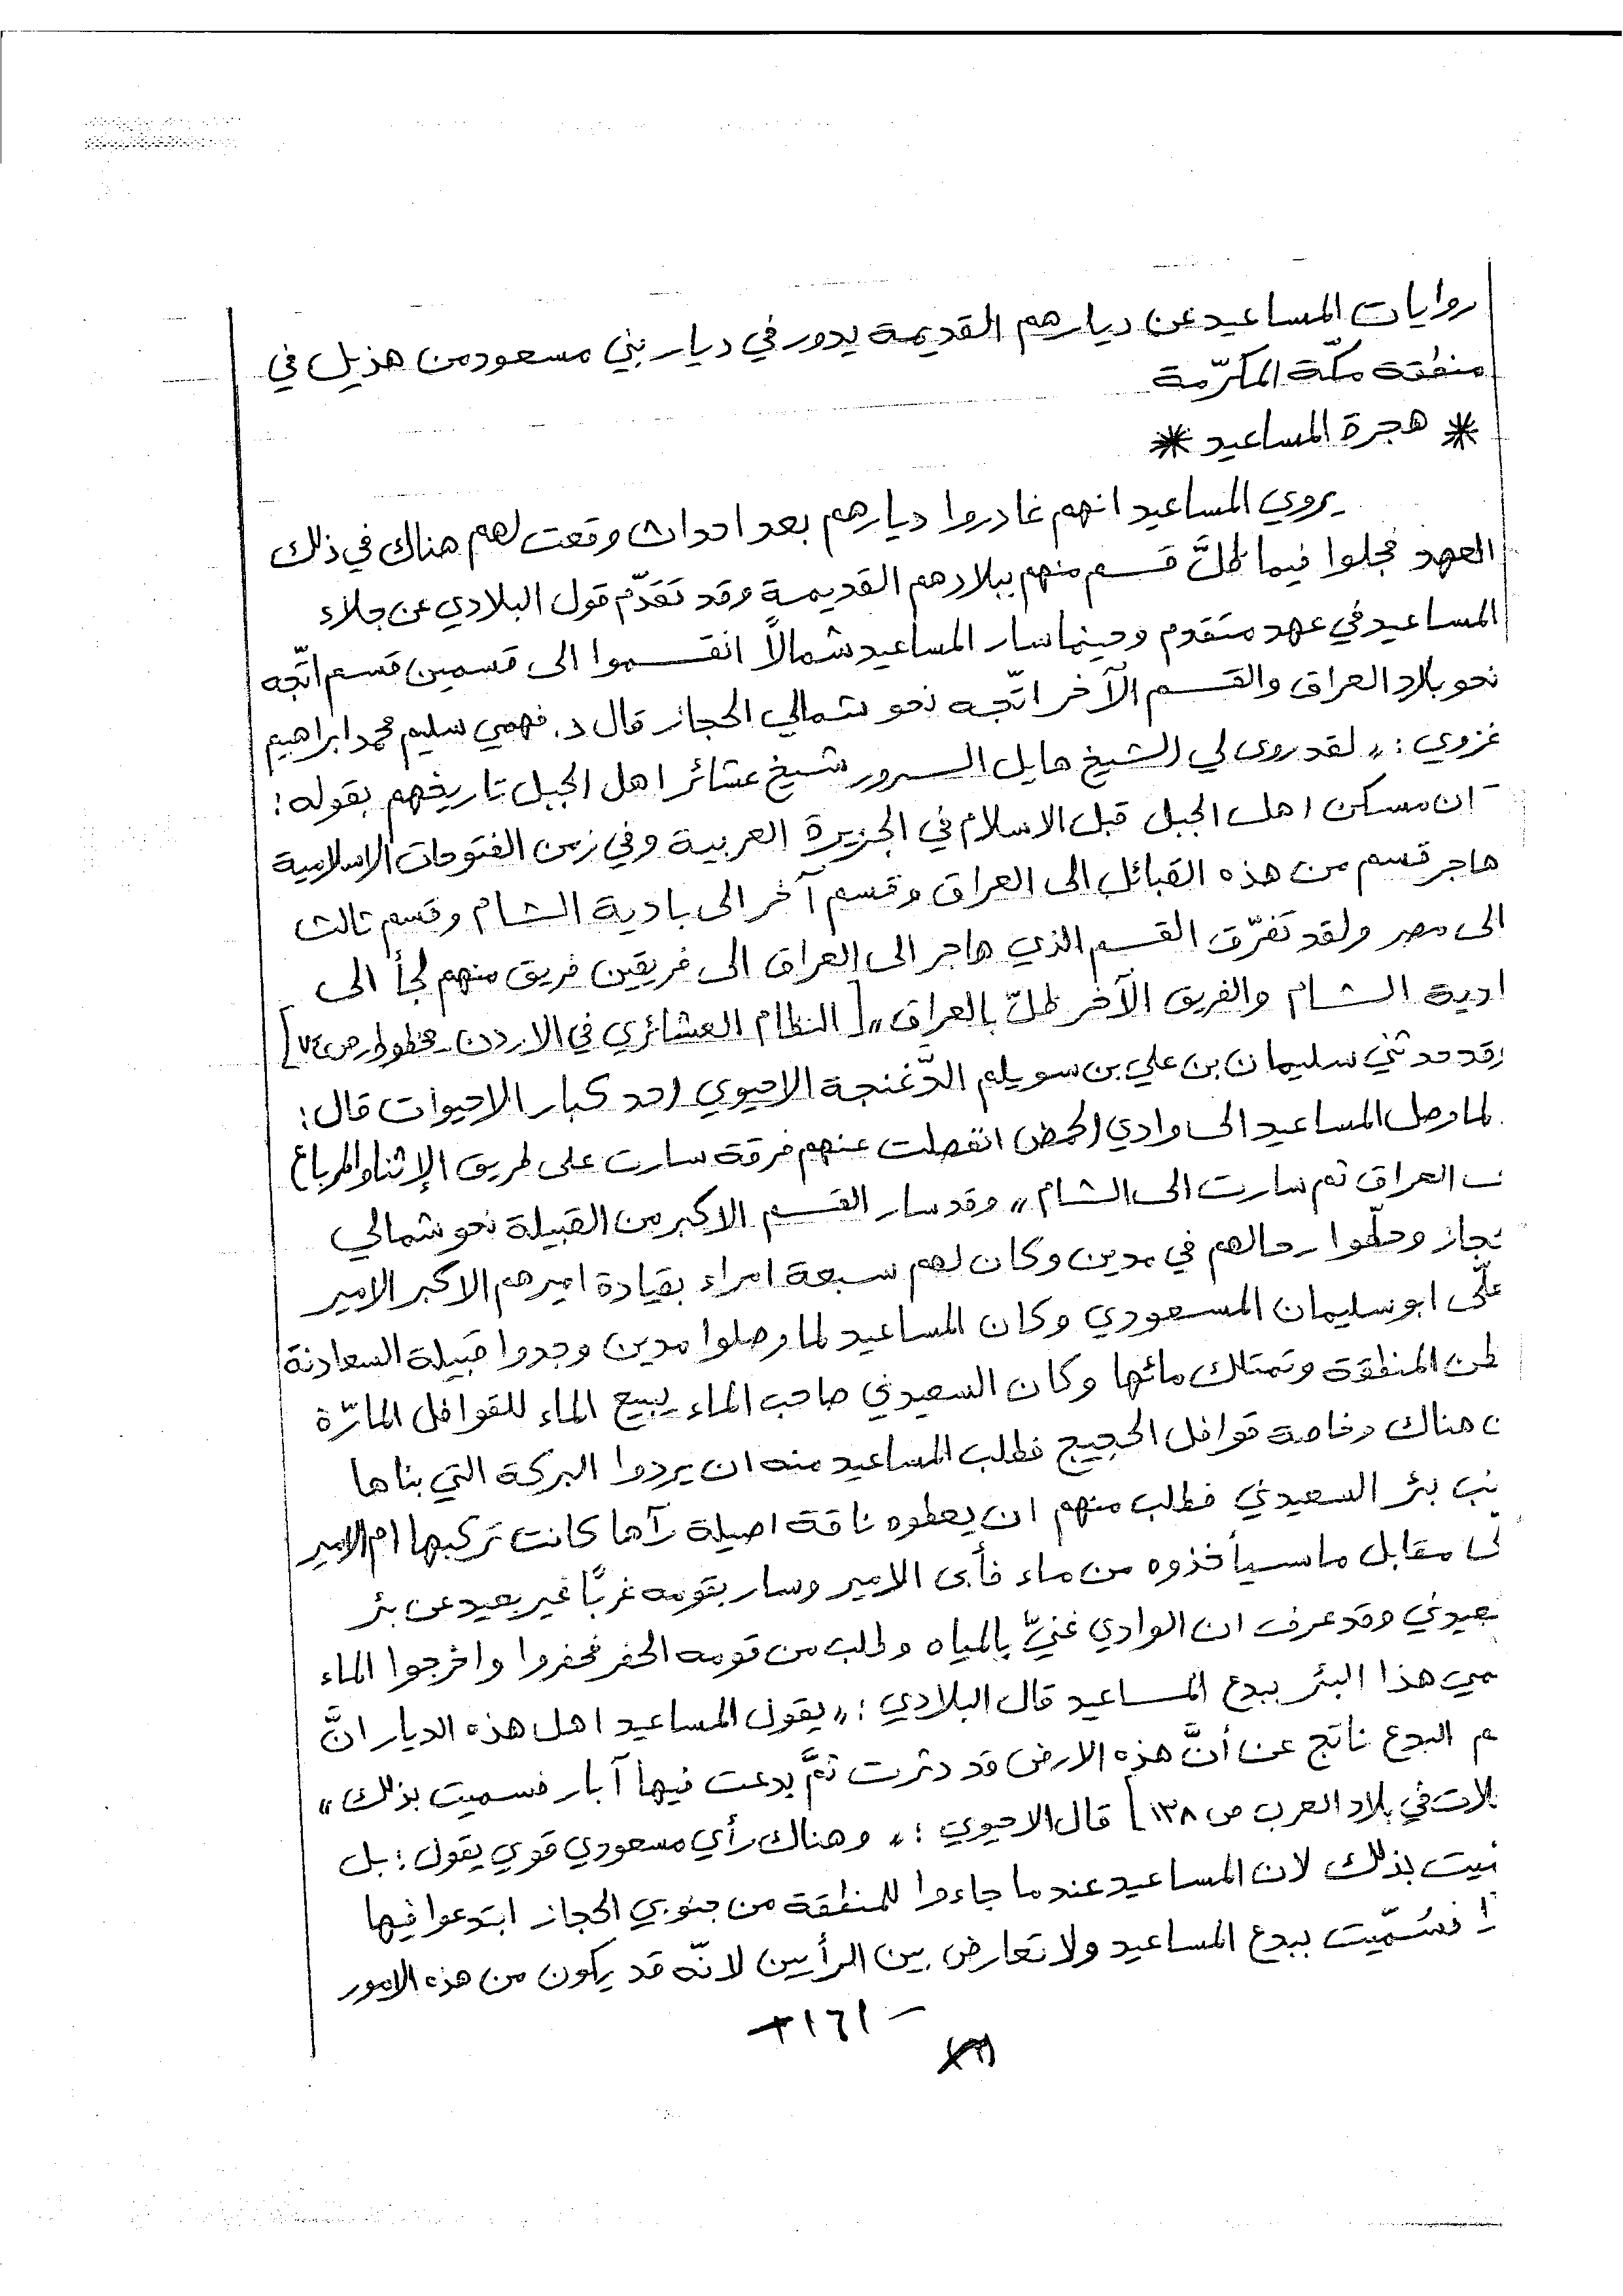 روايات المساعيد عن ديارهم القديمة يدور في ديار بني مسعود من هذيل في
منطقة مكّة المكرّمة
* هجرة المساعيد *
يروي المساعيد انهم غادروا ديارهم بعد احداث وقعت لهم هناك في ذلك
العهد فجلوا فيما ظلَّ قسم منهم ببلادهم القديمة وقد تقدّم قول البلادي عن جلاء
المساعيد في عهد متقدم وحينما سار المساعيد شمالاً انقسموا الى قسمين قسم اتّجه
نحو بلاد العراق والقسم الآخر اتّجه نحو شمالي الحجاز قال د. فهمي سليم محمد ابراهيم
غزوي : " لقد روى لي الشيخ هايل السرور شيخ عشائر اهل الجبل تاريخهم بقوله :
- ان مسكن اهل الجبل قبل الاسلام في الجزيرة العربية وفي زمن الفتوحات الاسلامية
هاجر قسم من هذه القبائل الى العراق وقسم آخر الى بادية الشام وقسم ثالث
الى مصر ولقد تفرّق القسم الذي هاجر الى العراق الى فريقين فريق منهم لجأ الى
ادية الشام والفريق الآخر ظلّ بالعراق " [ النظام العشائري في الاردن - مخطوط ص ٧٤ ]
وقد حدثني سليمان بن علي بن سويلم الدّغنجة الاحيوي احد كبار الاحيوات قال :
لما وصل المساعيد الى وادي الحمض انفصلت عنهم فرقة سارت على طريق الإثنا والمرباع
ـت العراق ثم سارت الى الشام " وقد سار القسم الاكبر من القبيلة نحو شمالي
ـجاز وحلّوا رحالهم في مدين وكان لهم سبعة امراء بقيادة اميرهم الاكبر الامير
علّى ابو سليمان المسعودي وكان المساعيد لما وصلوا مدين وجدوا قبيلة السعادنة
طن المنطقة وتمتلك مائها وكان السعيدني صاحب الماء يبيع الماء للقوافل المارّة
ن هناك وخاصة قوافل الحجيج فطلب المساعيد منه ان يردوا البركة التي بناها
ـنب بئر السعيدني فطلب منهم ان يعطوه ناقة اصيلة رآها كانت تركبها ام الامير
لى مقابل ما سيأخذوه من ماء فأبى الامير وسار بقومه غربًا غير بعيد عن بئر
ـعيدني وقد عرف ان الوادي غنيّ بالمياه وطلب من قومه الحفر فحفروا واخرجوا الماء
ـمي هذا البئر ببدع المساعيد قال البلادي : " يقول المساعيد اهل هذه الديار انَّ
م البدع ناتج عن أنَّ هذه الارض قد دثرت ثمَّ بدعت فيها آبار فسميت بذلك "
ـلات في بلاد العرب ص ١٣٨ ] قال الاحيوي : " وهناك رأي مسعودي قوي يقول : بل
ـيت بذلك لان المساعيد عندما جاءوا للمنطقة من جنوبي الحجاز ابتدعوا فيها
ـا فسُمّيت ببدع المساعيد ولا تعارض بين الرأيين لانّه قد يكون من هذه الامور
- ١٦١ -